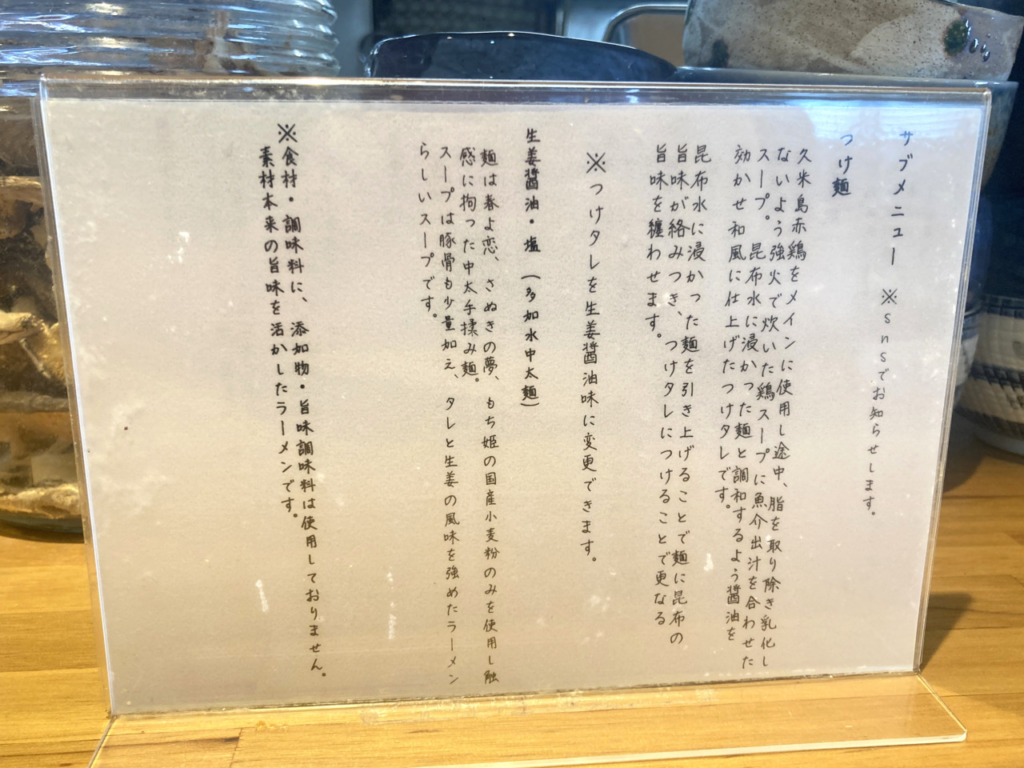 サブメニュー ※snsでお知らせします。
つけ麺
久米島赤鶏をメインに使用し途中、脂を取り除き乳化し
ないよう強火で炊いた鶏スープに魚介出汁を合わせた
スープ。昆布水に浸かった麺と調和するよう醤油を
効かせ和風に仕上げたつけタレです。
昆布水に浸かった麺を引き上げることで麺に昆布の
旨味が絡みつき、つけタレにつけることで更なる
旨味を纏わせます。
※つけタレを生姜醤油味に変更できます。
生姜醤油・塩 (多加水中太麺)
麺は春よ恋、さぬきの夢、もち姫の国産小麦粉のみを使用し触
感に拘った中太手揉み麺。
スープは豚骨も少量加え、タレと生姜の風味を強めたラーメン
らしいスープです。
※食材・調味料に、添加物・旨味調味料は使用しておりません。
素材本来の旨味を活かしたラーメンです。